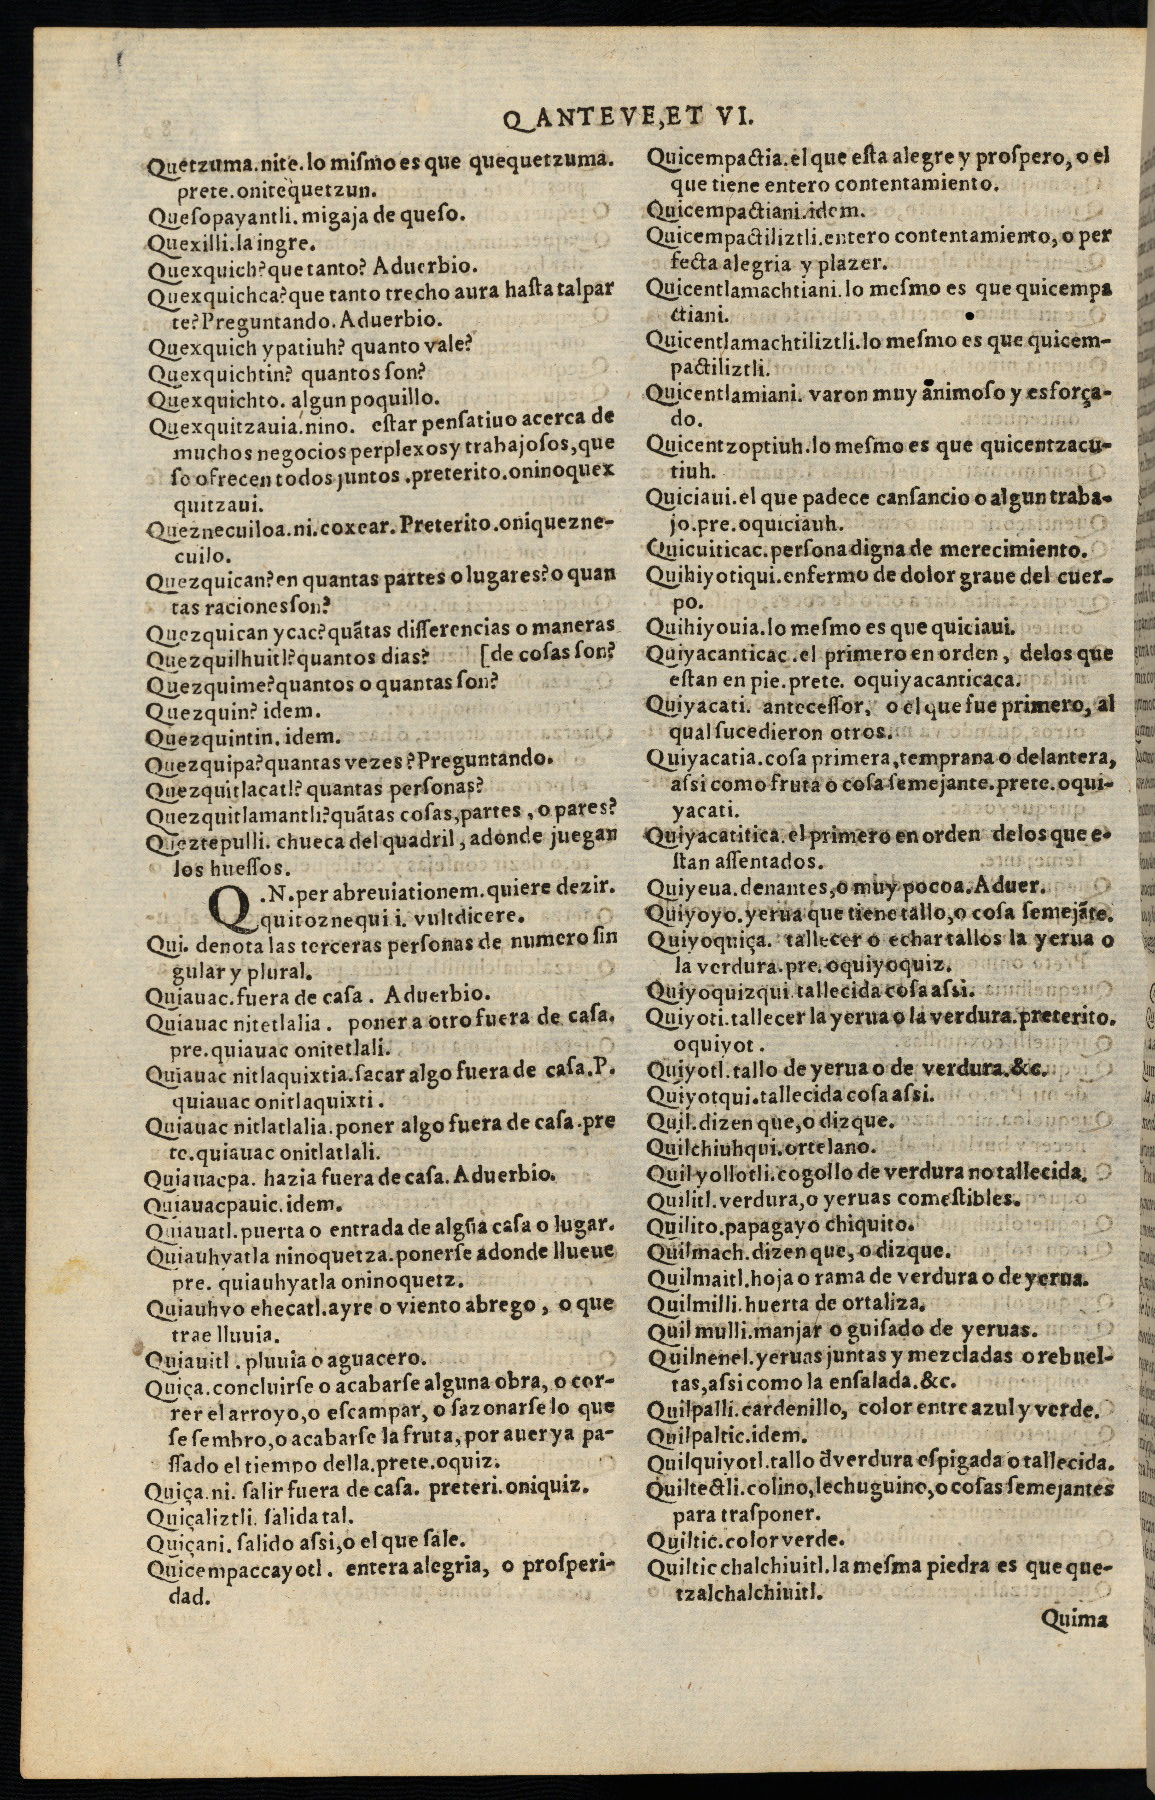 Q ANTEVE,ET VI.
Quetzuma.nite.lo miſmo es que quequetzuma.
prete.onitequetzun.
Queſopayantli. migaja de queſo.
Quexilli.la ingre.
Quexquich?que tanto? Aduerbio.
Quexquichca?que tanto trecho aura haſta tal par
te?Preguntando.Aduerbio.
Quexquich ypatiuh? quanto vale?
Quexquichtin? quantos ſon?
Quexquichto. algun poquillo.
Quexquitzauia.nino. eſtar penſatiuo acerca de
muchos negocios perplexos y trabajoſos,que
ſe ofrecen todos juntos.preterito.oninoquex
quitzaui.
Queznecuiloa.ni.coxear.Preterito.oniquezne-
cuilo.
Quezquican?en quantas partes o lugares?o quan
tas raciones ſon?
Quezquican ycac?quãtas differencias o maneras
Quezquilhuitl?quantos dias? [de coſas ſon?
Quezquime?quantos o quantas ſon?
Quezquin? idem.
Quezquintin.idem.
Quezquipa?quantas vezes?Preguntando.
Quezquitlacatl? quantas perſonas?
Quezquitlamantli?quãtas coſas,partes, o pares?
Queztepulli. chueca del quadril, adonde juegan
los hueſſos.
Q.N.per abreuiationem.quiere dezir.
quitoznequi i. vultdicere.
Qui. denota las terceras perſonas de numero ſin
gular y plural.
Quiauac.fuera de caſa. Aduerbio.
Quiauac nitetlalia. poner a otro fuera de caſa.
pre.quiauac onitetlali.
Quiauac nitlaquixtia.ſacar algo fuera de caſa.P.
quiauac onitlaquixti.
Quiauac nitlatlalia.poner algo fuera de caſa.pre
te.quiauac onitlatlali.
Quiauacpa. hazia fuera de caſa.Aduerbio.
Quiauacpauic.idem.
Quiauatl.puerta o entrada de algũa caſa o lugar.
Quiauhyatla ninoquetza.ponerſe adonde llueue
pre. quiauhyatla oninoquetz.
Quiauhyo ehecatl.ayre o viento abrego, o que
trae lluuia.
Quiauitl. pluuia o aguacero.
Quiça.concluirſe o acabarſe alguna obra, o cor-
rer el arroyo,o eſcampar, o ſazonarſe lo que
ſe ſembro,o acabarſe la fruta,por auer ya pa-
ſſado el tiempo della.prete.oquiz.
Quiça.ni. ſalir fuera de caſa. preteri.oniquiz.
Quiçaliztli. ſalida tal.
Quiçani. ſalido aſſi,o el que ſale.
Quicempaccayotl. entera alegria, o proſperi-
dad.
Quicempactia.el que eſta alegre y proſpero,o el
que tiene entero contentamiento.
Quicempactiani.idem.
Quicempactiliztli.entero contentamiento, o per
fecta alegria y plazer.
Quicentlamachtiani.lo meſmo es que quicempa
ctiani.
Quicentlamachtiliztli.lo meſmo es que quicem-
pactiliztli.
Quicentlamiani. varon muy animoſo y eſforça-
do.
Quicentzoptiuh.lo meſmo es que quicentzacu-
tiuh.
Quiciaui.el que padece canſancio o algun traba-
jo.pre.oquiciauh.
Quicuiticac.perſona digna de merecimiento.
Quihiyotiqui.enfermo de dolor graue del cuer-
po.
Quihiyouia.lo meſmo es que quiciaui.
Quiyacanticac.el primero en orden, delos que
eſtan en pie.prete. oquiyacanticaca.
Quiyacati. anteceſſor, o el que fue primero, al
qual ſucedieron otros.
Quiyacatia.coſa primera,temprana o delantera,
aſſi como fruta o coſa ſemejante.prete.oqui-
yacati.
Quiyacatitica.el primero en orden delos que e-
ſtan aſſentados.
Quiyeua.denantes,o muy pocoa.Aduer.
Quiyoyo.yerua que tiene tallo,o coſa ſemejãte.
Quiyoquiça. tallecer o echar tallos la yerua o
la verdura.pre.oquiyoquiz.
Quiyoquizqui.tallecida coſa aſſi.
Quiyoti.tallecer la yerua o la verdura.preterito.
oquiyot.
Quiyotl.tallo de yerua o de verdura.&c.
Quiyotqui.tallecida coſa aſſi.
Quil.dizen que,o dizque.
Quilchiuhqui.ortelano.
Quilyollotli.cogollo de verdura no tallecida.
Quilitl.verdura,o yeruas comeſtibles.
Quilito.papagayo chiquito.
Quilmach.dizen que, o dizque.
Quilmaitl.hoja o rama de verdura o de yerua.
Quilmilli.huerta de ortaliza.
Quilmulli.manjar o guiſado de yeruas.
Quilnenel.yeruas juntas y mezcladas o rebuel-
tas,aſſi como la enſalada.&c.
Quilpalli.cardenillo, color entre azul y verde.
Quilpaltic.idem.
Quilquiyotl.tallo đ verdura eſpigada o tallecida.
Quiltectli.colino,lechuguino,o coſas ſemejantes
para traſponer.
Quiltic.color verde.
Quiltic chalchiuitl.la meſma piedra es que que-
tzalchalchiuitl.
Quima